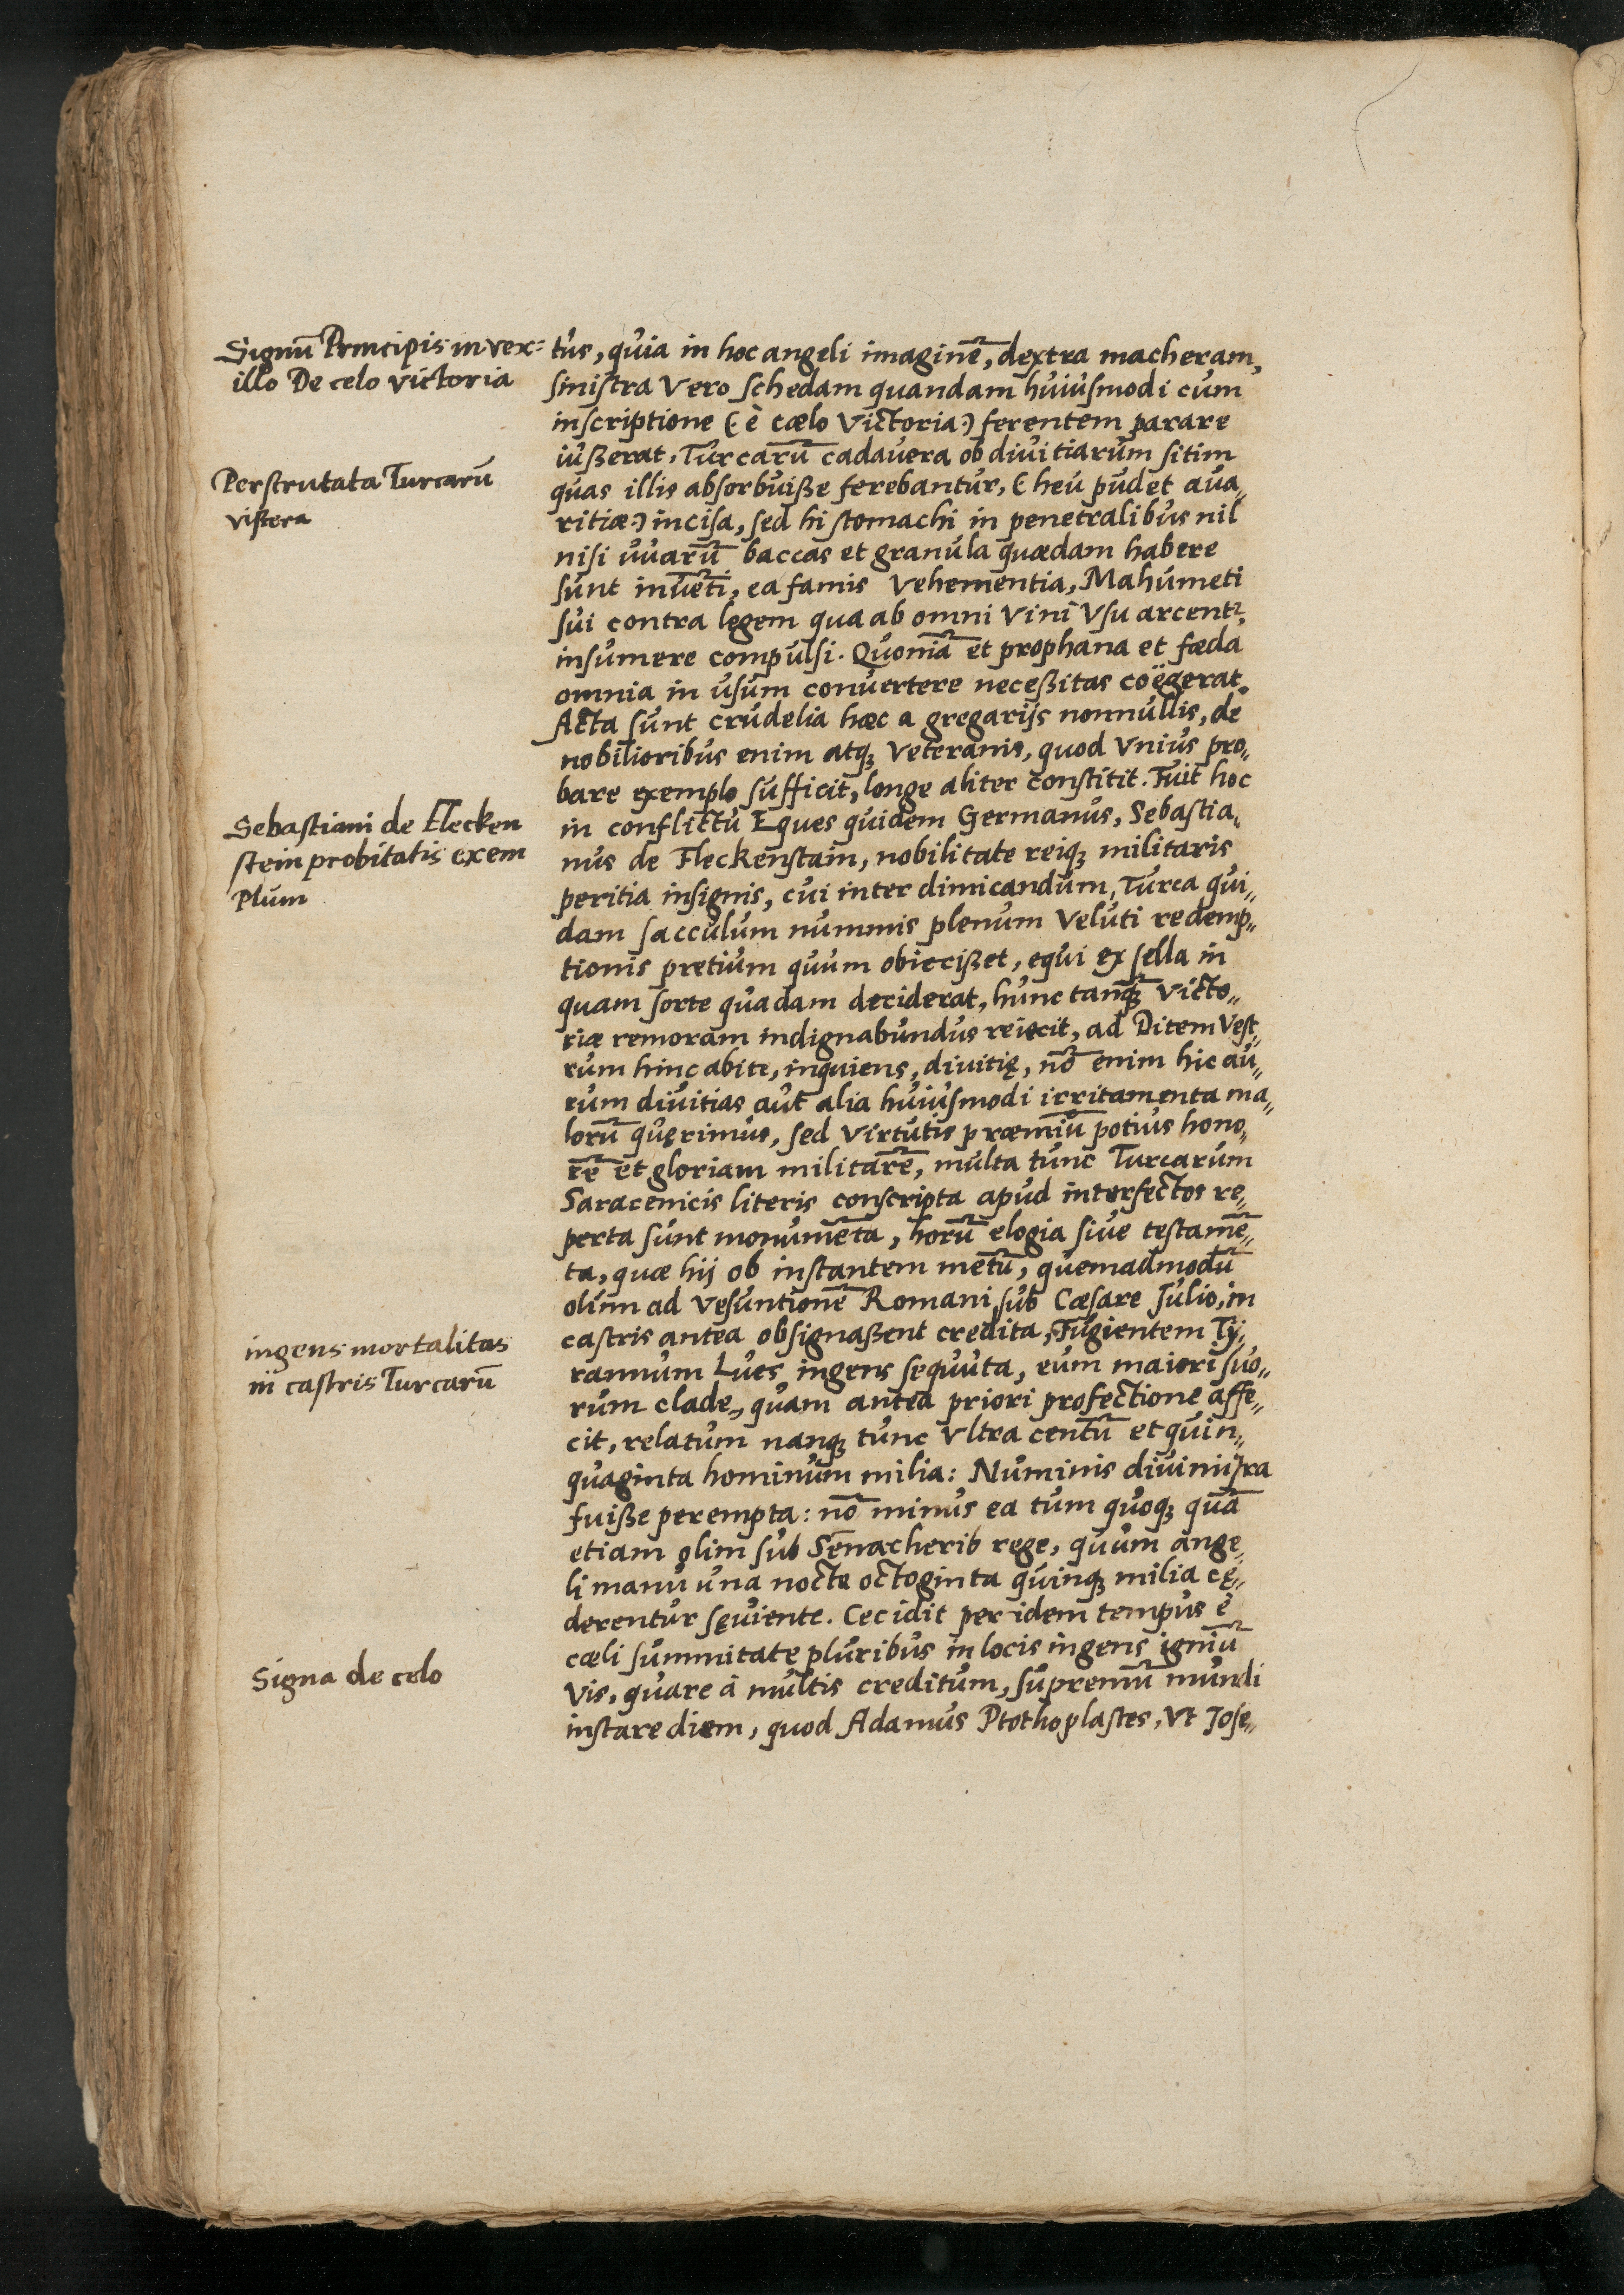 Signũ Principis in vex=
illo De celo victoria
Perscrutata Turcarũ
viscera
Sebastiani de Flecken
stein probitatis exem
Plum
ingens mortalitas
in castris Turcarũ
Signa de celo
tus, quia in hoc angeli imaginẽ, dextra macheram,
sinistra vero schedam quandam huiusmodi cum
inscriptione (: è cælo victoria :) ferentem parare
iußerat, Turcarũ cadavera ob divitiarum sitim
quas illis absorbuiße ferebantur, (: heu pudet ava„
ritiæ :) incisa, sed hi stomachi in penetralibus nil
nisi uvarũ baccas et granula quædam habere
sunt invẽti, ea famis vehementia, Mahumeti
sui contra legem qua ab omni vini usu arcentr,
insumere compulsi. Quoniã et prophana et fæda
omnia in usum convertere neceßitas coëgerat.
Acta sunt crudelia hæc a gregarijs nonnullis, de
nobilioribus enim atqꝫ veteranis, quod unius pro„
bare exemplo sufficit, longe aliter constitit. Fuit hoc
in conflictu Eques quidem Germanus, Sebastia„
nus de Fleckenstain, nobilitate reiqꝫ militaris
peritia insignis, cui inter dimicandum, Turca qui„
dam sacculum nummis plenum veluti redemp„
tionis pretium quum obiecißet, equi ex sella in
quam sorte quadam deciderat, hunc tanqꝫ victo„
riæ remoram indignabundus reiecit, ad Ditem vest„
rum hinc abite, inquiens, divitię, nõ enim hic au„
rum divitias aut alia huiusmodi irritamenta ma„
lorũ quęrimus, sed virtutis præmiũ potius hono„
rẽ et gloriam militarẽ, multa tunc Turcarum
Saracenicis literis conscripta apud interfectos re„
perta sunt monumẽta, horũ elogia sive testamẽ„
ta, quæ hij ob instantem metũ, quemadmodũ
olim ad Vesuntionẽ Romani sub Cæsare Julio, in
castris antea obsignaßent credita, Fugientem Ty„
rannum Lues ingens sequuta, eum maiori suo„
rum clade, quam antea priori profectione affe„
cit, relatum nanqꝫ tunc ultra centũ et quin„
quaginta hominum milia: Numinis divini ira
fuiße perempta: nõ minus ea tum quoqꝫ quã
etiam olim sub Senacherib rege, quum ange„
li manu una nocte octoginta quinqꝫ milia cę„
derentur sęviente. Cecidit per idem tempus è
cæli summitate pluribus in locis ingens igniũ
vis, quare à multis creditum, supremũ mundi
instare diem, quod Adamus Ptothoplastes, ut Jose„